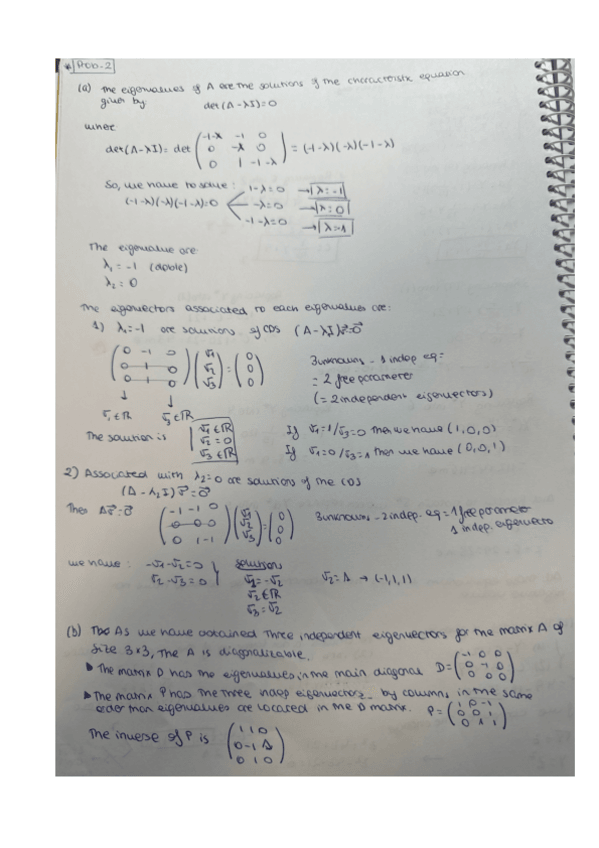 * PCD.2
(a) The eigenvalues of A are the solutions of the characteristic equation
given by: det(A-λI)=0
where
det(A-λI)= det ( -1-λ -1 0 ; 0 -λ 0 ; 0 1 -1-λ ) = (-1-λ)(-λ)(-1-λ)
So, we have to solve: 1-λ=0 → λ=-1
(-1-λ)(-λ)(-1-λ)=0 -λ=0 → λ=0
-1-λ=0 → λ=-1
The eigenvalue are
λ₁ = -1 (double)
λ₂ = 0
The eigenvectors associated to each eigenvalues are:
1) λ₁=-1 are solutions of CDS (A-λI)v⃗=0⃗
( 0 -1 0 ; 0 1 0 ; 0 1 0 ) ( v₁ ; v₂ ; v₃ ) = ( 0 ; 0 ; 0 )
3unknowns - 1 indep eq =
= 2 free parameter
(= 2 independent eigenvectors)
v₁∈ℝ v₃∈ℝ
The solution is v₁∈ℝ
v₂ = 0
v₃∈ℝ
If v₁=1/v₃=0 then we have (1,0,0)
If v₁=0/v₃=1 then we have (0,0,1)
2) Associated with λ₂=0 are solutions of the CDS
(A-λ₂I)v⃗=0⃗
Then Av⃗=0⃗ ( -1 -1 0 ; 0 0 0 ; 0 1 -1 ) ( v₁ ; v₂ ; v₃ ) = ( 0 ; 0 ; 0 )
3unknowns - 2 indep. eq = 1 free parameter
1 indep. eigenvecto
we have: -v₁-v₂=0
v₂-v₃=0
solution
v₁=-v₂
v₂∈ℝ
v₃=v₂
v₂=1 → (-1,1,1)
(b) As we have obtained three independent eigenvectors for the matrix A of
size 3x3, the A is diagonalizable.
▶ The matrix D has the eigenvalues in the main diagonal D= ( -1 0 0 ; 0 -1 0 ; 0 0 0 )
▶ The matrix P has the three indep eigenvectors by columns in the same
order than eigenvalues are located in the D matrix. P= ( 1 0 -1 ; 0 0 1 ; 0 1 1 )
The inverse of P is ( 1 1 0 ; 0 -1 1 ; 0 1 0 )